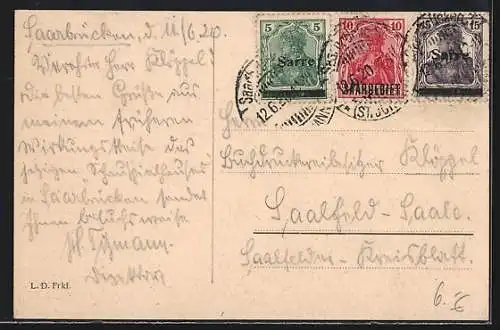 Saarbrücken, d. 11/6 20.
Verehrter Herr Klöppel!
Die besten Grüße aus
meinem früheren
Wirkungskreise des
jetzigen Schauspielhauses
in Saarbrücken sendet
Ihnen
Direktor
L. D. Frkf.
5
Sarre
10
10
SAARGEBIET
15
Sarre
12.6.20
(ST. JOH
Herrn
Buchdruckereibesitzer Klöppel
Saalfeld-Saale.
Saalfelder Kreisblatt.
6.-